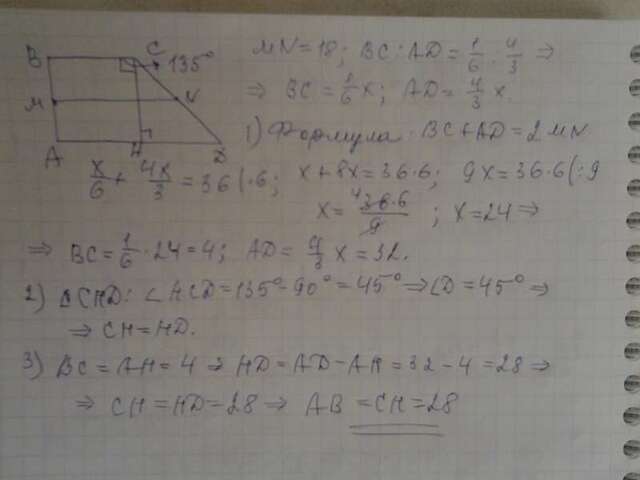 B C 135°
M N
A H D
MN = 18; BC : AD = 1/6 : 4/3 ⇒
⇒ BC = 1/6 x; AD = 4/3 x.
1) Формула: BC + AD = 2MN
x/6 + 4x/3 = 36 (·6; x + 8x = 36·6; 9x = 36·6 (:9
x = 36·6/9 ; x = 24 ⇒
⇒ BC = 1/6 · 24 = 4; AD = 4/3 x = 32.
2) ΔCHD: ∠HCD = 135° - 90° = 45° ⇒ ∠D = 45° ⇒
⇒ CH = HD.
3) BC = AH = 4 ⇒ HD = AD - AH = 32 - 4 = 28 ⇒
⇒ CH = HD = 28 ⇒ AB = CH = 28